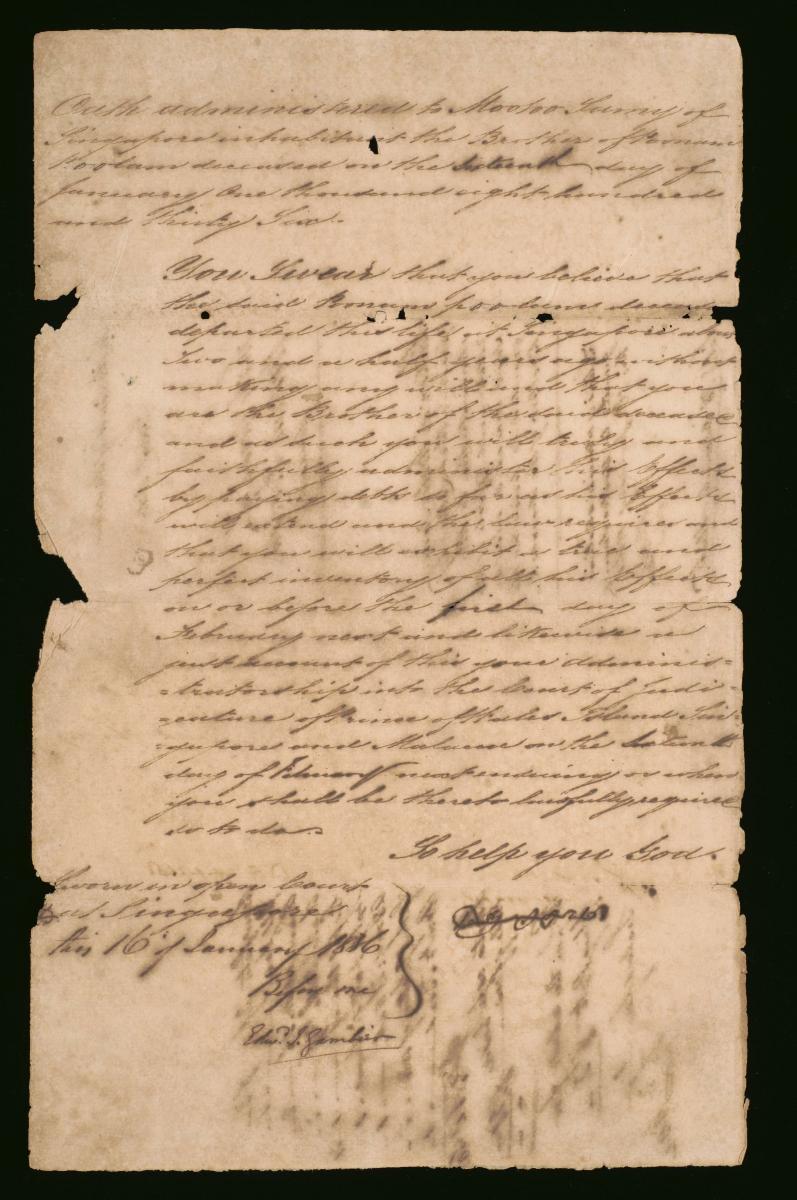 Oath administered to Mootoo Samy of
Singapore inhabitant the Brother of Ronam
Poolam deceased on the sixteenth day of
January One thousand eight hundred
and Thirty Six.
You Swear that you believe that
the said Ronam poolam deceased
departed this life at Singapore about
Two and a half years ago without
making any will and that you
are the Brother of the said deceased
and as such you will truly and
faithfully administer his Effects
by paying debts so far as his Effects
will extend and the law requires and
that you will exhibit a true and
perfect inventory of all his Effects
on or before the first day of
February next and likewise a
just account of this your adminis=
=tratorship into the Court of Judi=
=cature of Prince of Wales Island Sin=
=gapore and Malacca on the sixteenth
day of February next ensuing or when
you shall be thereto lawfully required
so to do.
So help you God.
Sworn in open Court
at Singapore
this 16 of January 1836
Before me
Edwd. J. Gambier